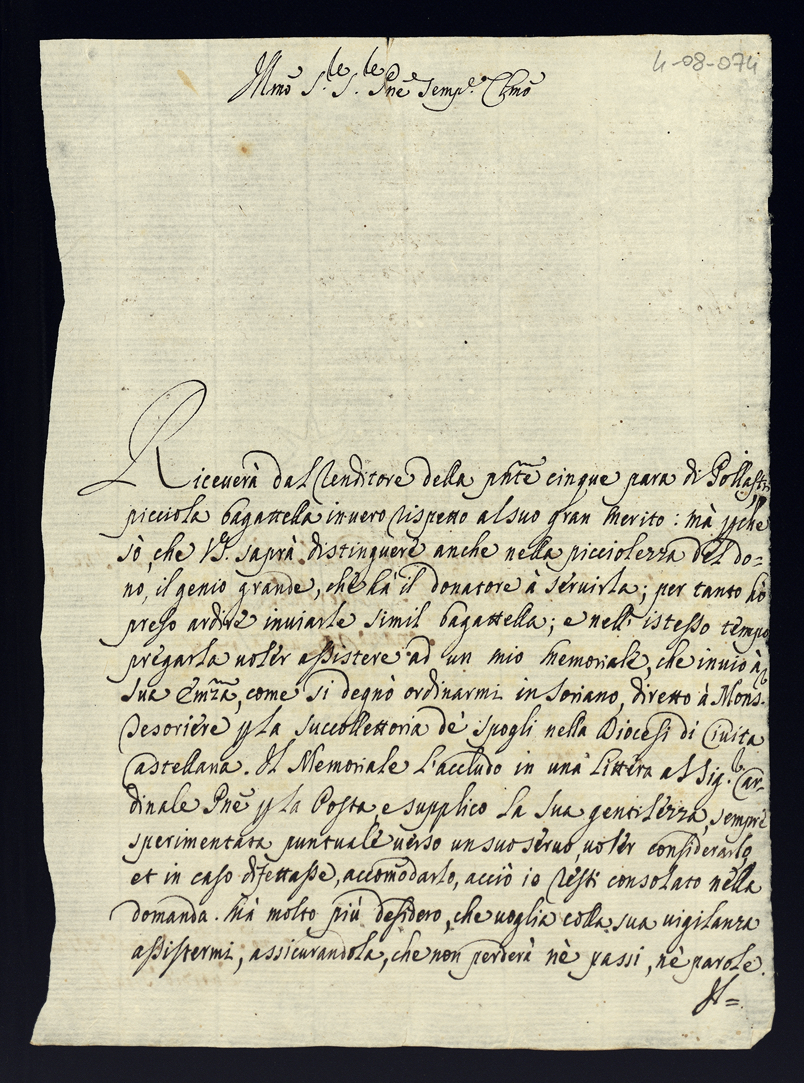 4-08-074
Illmo Sr. Sr. Pne Semp.e Colmo
Riceverà dal Renditore della pnte cinque para di Pollastri,
picciola bagattella invero rispetto al suo gran merito: mà pche
sò, che VS. saprà distinguere anche nella picciolezza del do=
no, il genio grande, che hà il donatore à servirla; per tanto hò
preso ardire inviarle simil bagattella; e nell'istesso tempo
pregarla voler assistere ad un mio memoriale, che invio à
Sua Emza, come si degnò ordinarmi in Soriano, diretto à Mons.
Tesoriere p la succollettoria de' spogli nella Diocesi di Civita
Castellana. Il Memoriale l'accludo in una littera al Sig. Car=
dinale Pne p la Posta, e supplico la sua gentilezza, sempre
sperimentata puntuale verso un suo servo, voler considerarlo,
et in caso difettasse, accomodarlo, acciò io resti consolato nella
domanda. Mà molto più desidero, che voglia colla sua vigilanza
assistermi, assicurandola, che non perderà nè passi, nè parole.
Il=